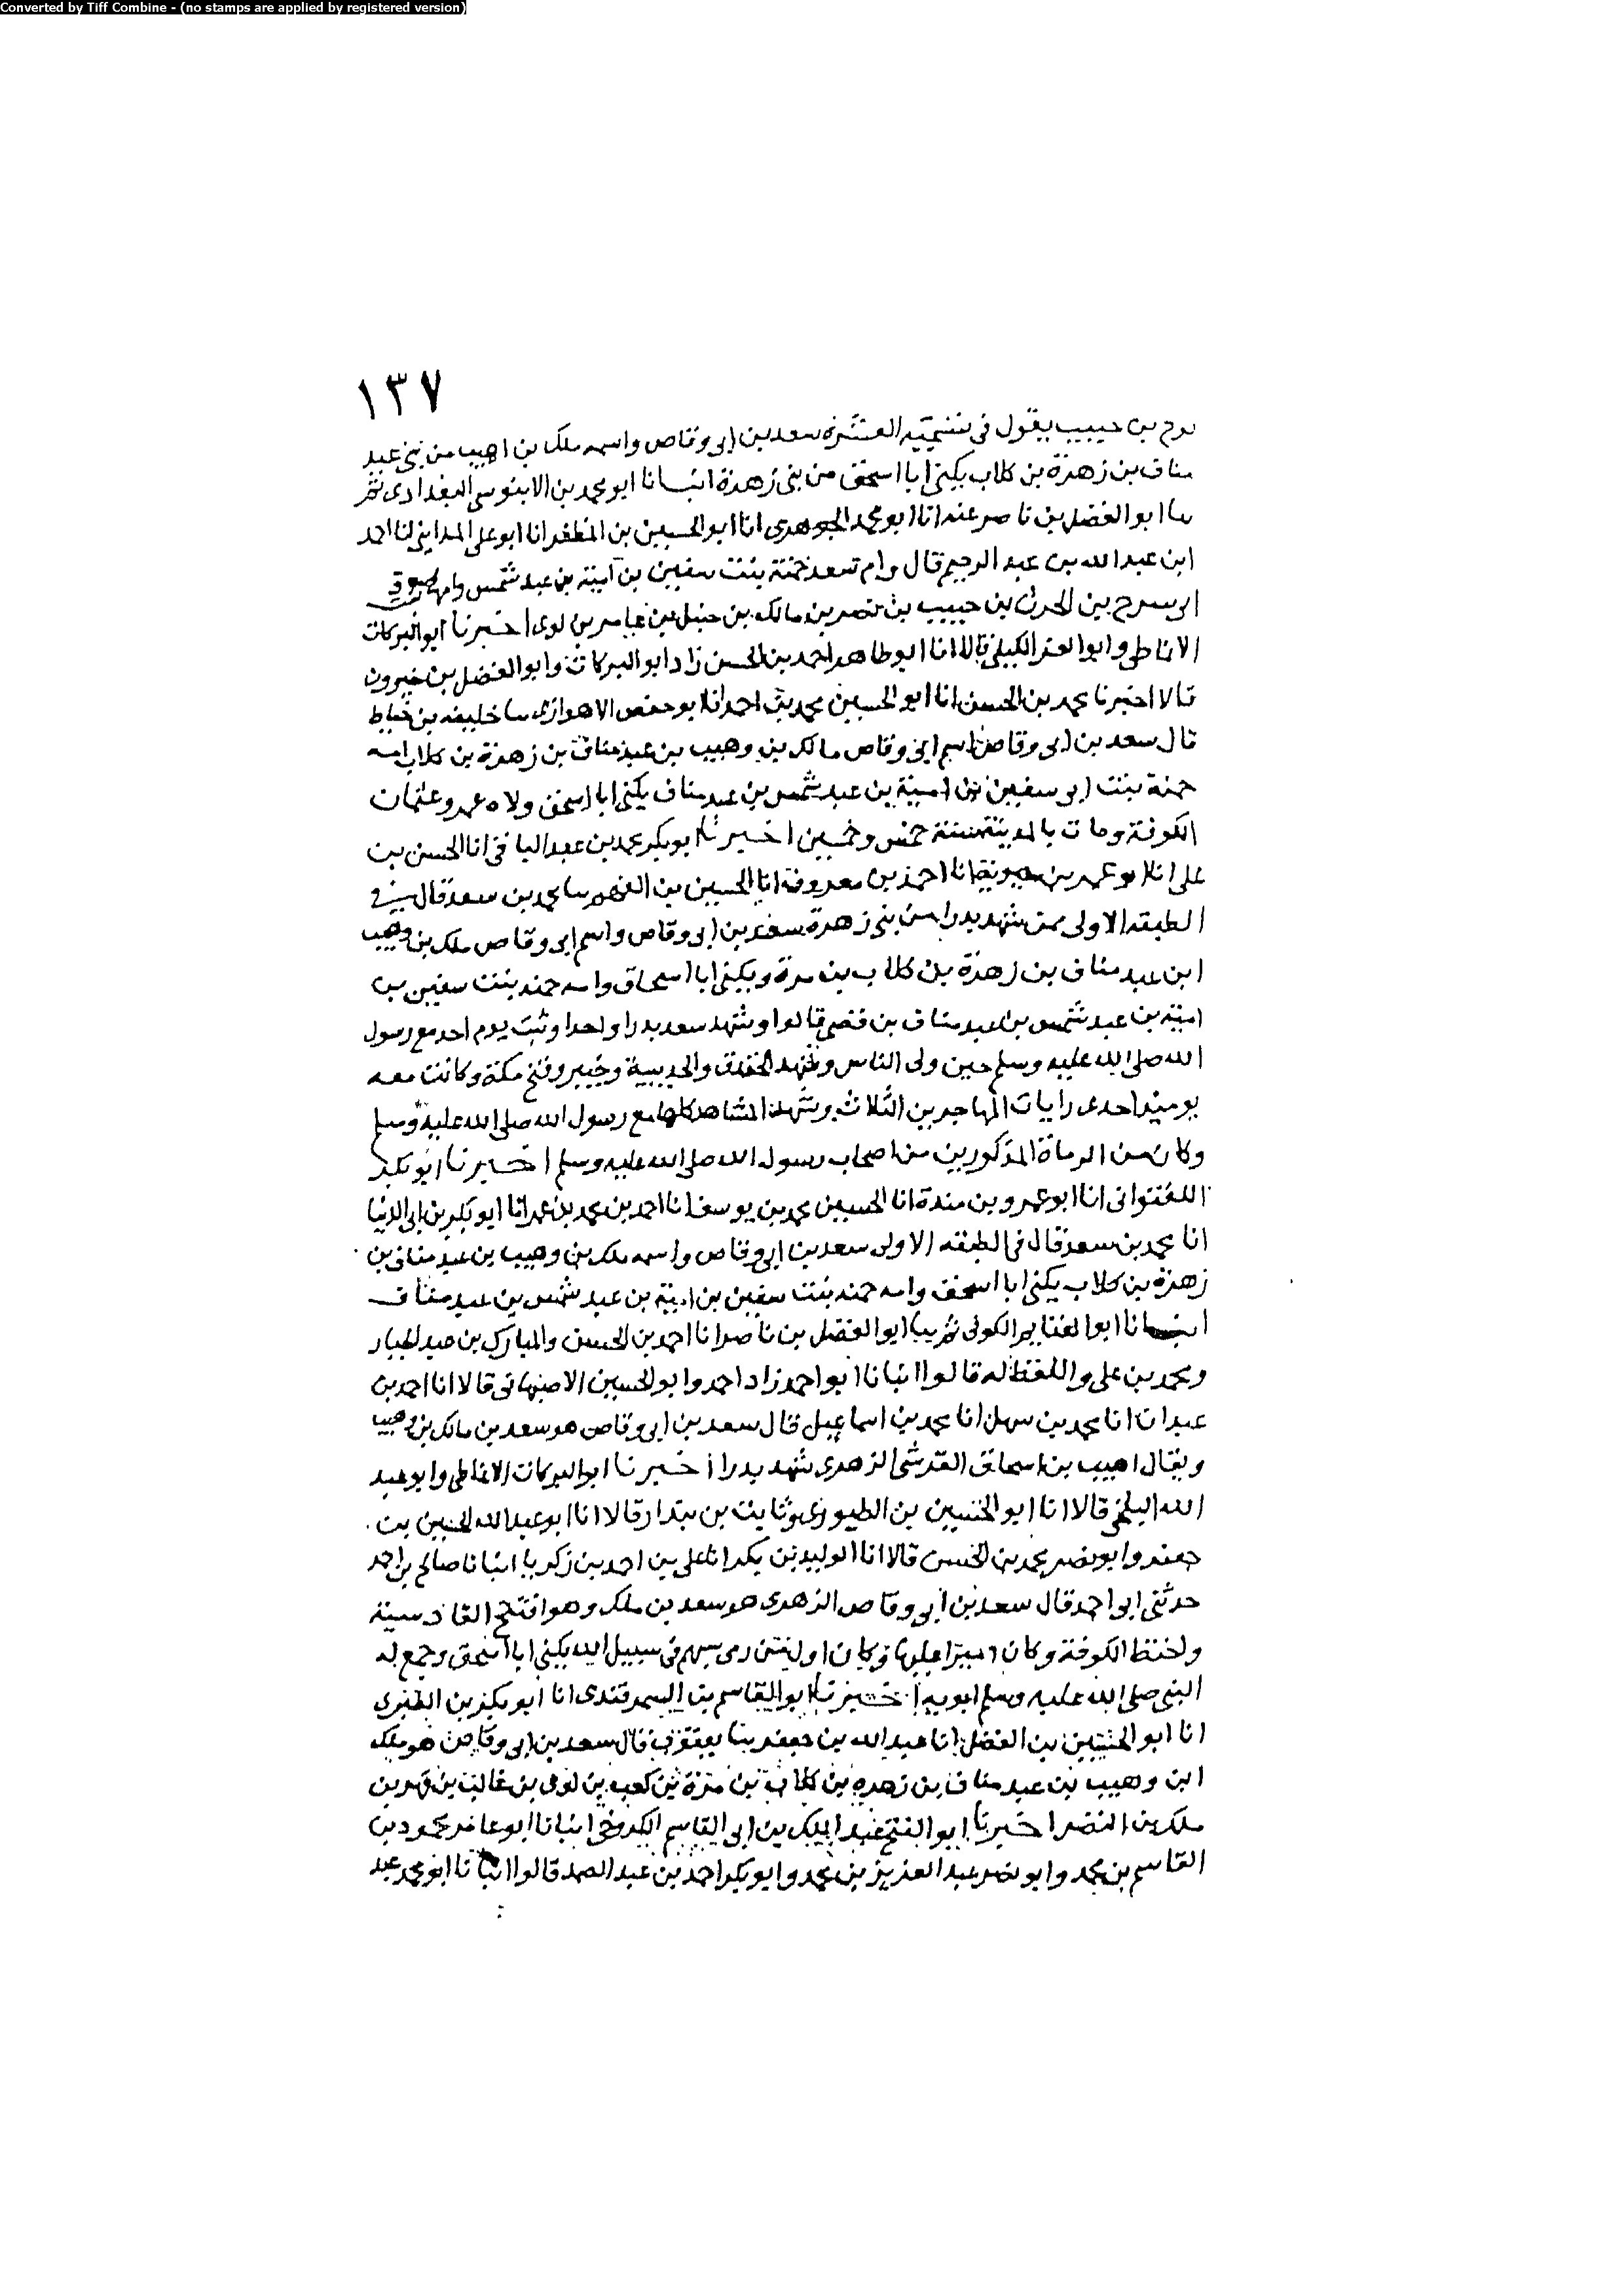 Converted by Tiff Combine - (no stamps are applied by registered version)
١٣٧
نوح بن حبيب يقول في تسمية العشرة سعد بن ابى وقاص واسمه ملك بن اهيب من بنى عبد
مناف بن زهرة بن كلاب يكنى ابا اسحق من بنى زهرة انبانا ابو محمد بن الابنوسى البغدادى ثم
نا ابو الفضل بن ناصر عنه انا ابو محمد الجوهرى انا ابو الحسين بن المظفر انا ابو على المداينى انا احمد
ابن عبد الله بن عبد الرحيم قال وام سعد حمنة بنت سفين بن امية بن عبد شمس وامها
ابى سرح بن الحرث بن حبيب بن نصر بن مالك بن حنبل بن عامر بن لوى اخبرنا ابو البركات
الانماطى وابو العز الكيلى قالا انا ابو طاهر احمد بن الحسن زاد ابو البركات وابو الفضل بن خيرون
قالا اخبرنا محمد بن الحسن انا ابو الحسين محمد بن احمد انا ابو حفص الاهوازى نا خليفه بن خياط
قال سعد بن ابى وقاص اسم ابى وقاص مالك بن وهيب بن عبد مناف بن زهرة بن كلاب امه
حمنة بنت ابى سفين بن امية بن عبد شمس بن عبد مناف يكنى ابا اسحق ولاه عمر وعثمان
الكوفة ومات بالمدينة سنة خمس وخمسين اخبرنا ابو بكر محمد بن عبد الباقى انا الحسن بن
على انا ابو عمر بن حيوية انا احمد بن معروف انا الحسين بن الفهم نا محمد بن سعد قال في
الطبقه الاولى ممن شهد بدرا من بنى زهرة سعد بن ابى وقاص واسم ابى وقاص ملك بن وهيب
ابن عبد مناف بن زهرة بن كلاب بن مرة ويكنى ابا اسحاق وامه حمنه بنت سفين بن
امية بن عبد شمس بن عبد مناف بن قصى قالوا وشهد سعد بدرا واحدا وثبت يوم احد مع رسول
الله صلى الله عليه وسلم حين ولى الناس وشهد الخندق والحديبية وخيبر وفتح مكة وكانت معه
يوميذ احدى رايات المهاجرين الثلاث وشهد المشاهد كلها مع رسول الله صلى الله عليه وسلم
وكان من الرماة المذكورين من اصحاب رسول الله صلى الله عليه وسلم اخبرنا ابو بكر
اللفتوانى انا ابو عمرو بن مندة انا الحسين محمد بن يوسف انا احمد بن محمد بن عمر انا ابو بكر بن ابى الدنيا
انا محمد بن سعد قال في الطبقه الاولى سعد بن ابى وقاص واسمه ملك بن وهيب بن عبد مناف بن
زهرة بن كلاب يكنى ابا اسحق وامه حمنه بنت سفين بن امية بن عبد شمس بن عبد مناف
انبانا ابو الغنايم الكوفى ثم نا ابو الفضل بن ناصر انا احمد بن الحسن والمبارك بن عبد الجبار
ومحمد بن على واللفظ له قالوا انبانا ابو احمد زاد احمد وابو الحسين الاصبهانى قالا انا احمد بن
عبدان انا محمد بن سهل انا محمد بن اسماعيل قال سعد بن ابى وقاص هو سعد بن مالك بن وهيب
ويقال اهيب بن اسحاق القرشى الزهرى شهد بدرا اخبرنا ابو البركات الانماطى وابو عبد
الله البلخى قالا انا ابو الحسين بن الطيورى وثابت بن بندار قالا انا ابو عبد الله الحسين بن
جعفر وابو نصر محمد بن الحسن قالا انا الوليد بن بكر انا على بن احمد بن زكريا انبانا صالح بن احمد
حدثنى ابو احمد قال سعد بن ابى وقاص الزهرى هو سعد بن ملك وهو افتتح القادسية
واختط الكوفة وكان اميرا عليها وكان اول من رمى بسهم في سبيل الله يكنى ابا اسحق وجمع له
النبى صلى الله عليه وسلم ابويه اخبرنا ابو القاسم بن السمرقندى انا ابو بكر بن الطبرى
انا ابو الحسين بن الفضل انا عبد الله بن جعفر نا يعقوب قال سعد بن ابى وقاص هو ملك
ابن وهيب بن عبد مناف بن زهره بن كلاب بن مرة بن كعب بن لوى بن غالب بن فهر بن
ملك بن النضر اخبرنا ابو الفتح عبد الملك بن ابى القاسم الكروخى انبانا ابو عامر محمود بن
القاسم بن محمد وابو نصر عبد العزيز بن محمد وابو بكر احمد بن عبد الصمد قالوا انبانا ابو محمد عبد